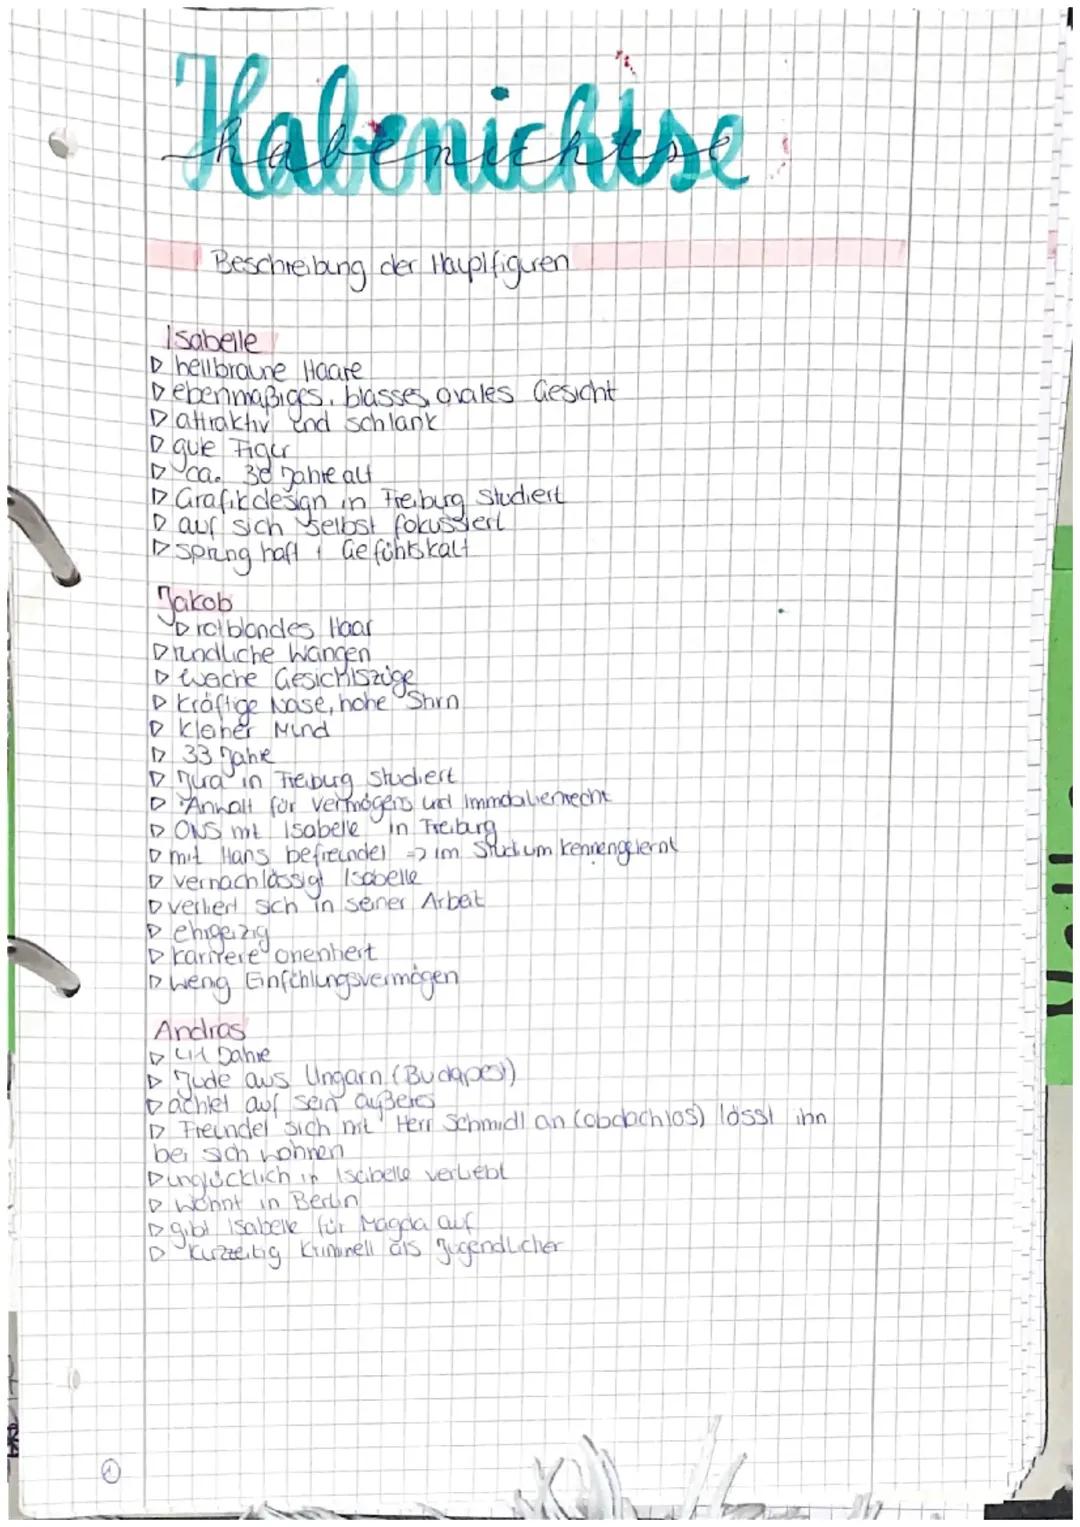 Habenichtse
habenichtse
Beschreibung der Hauptfiguren
Isabelle
▷ hellbraune Haare
▷ ebenmäßiges, blasses, ovales Gesicht
▷ attraktiv und schlank
▷ gute Figur
▷ ca. 30 Jahre alt
▷ Grafikdesign in Freiburg studiert
▷ auf sich selbst fokussiert
▷ sprunghaft, Gefühlskalt
Jakob
▷ rotblondes Haar
▷ rundliche Wangen
▷ weiche Gesichtszüge
▷ kräftige Nase, hohe Stirn
▷ kleiner Mund
▷ 33 Jahre
▷ Jura in Freiburg studiert
▷ Anwalt für Vermögens und Immobilienrecht
▷ ONS mit Isabelle in Freiburg
▷ mit Hans befreundet => im Studium kennengelernt
▷ vernachlässigt Isabelle
▷ verliert sich in seiner Arbeit
▷ ehrgeizig
▷ karriere orientiert
▷ wenig Einfühlungsvermögen
Andras
▷ 41 Jahre
▷ Jude aus Ungarn (Budapest)
▷ achtet auf sein äußeres
▷ Freundet sich mit Herr Schmidt an (obdachlos) lässt ihn
bei sich wohnen
▷ unglücklich in Isabelle verliebt
▷ wohnt in Berlin
▷ gibt Isabelle für Magda auf
▷ kurzzeitig kriminell als Jugendlicher
1